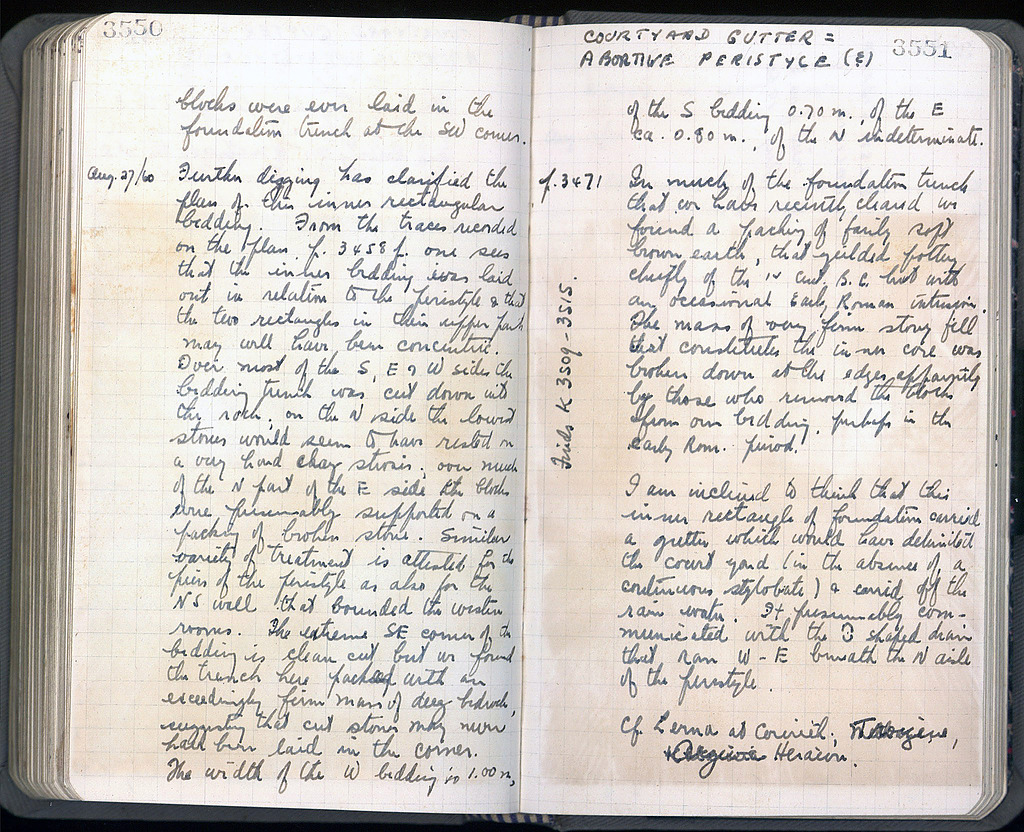 3550
blocks were ever laid in the
foundation trench at the SW corner.
Aug. 27/60 Further digging has clarified the
plan of this inner rectangular
bedding. From the traces recorded
on the plan p. 3458 f. one sees
that the inner bedding was laid
out in relation to the peristyle & that
the two rectangles in their upper part
may well have been concentric.
Over most of the S, E & W sides the
bedding trench was cut down into
the rock; on the N side the lowest
stones would seem to have rested on
a very hard clay strosis; over much
of the N part of the E side the blocks
were presumably supported on a
packing of broken stone. Similar
variety of treatment is attested for the
piers of the peristyle as also for the
NS wall that bounded the western
rooms. The extreme SE corner of the
bedding is clean cut but we found
the trench here packed with an
exceedingly firm mass of deeg bedrock,
suggesting that cut stones may never
have been laid in the corner.
The width of the W bedding is 1.00 m,
COURTYARD GUTTER =
ABORTIVE PERISTYLE (E)
3551
of the S bedding 0.70 m., of the E
ca. 0.80 m., of the N indeterminate.
cf. 3471 In much of the foundation trench
that we have recently cleared we
found a packing of fairly soft
brown earth, that yielded pottery
chiefly of the 1st cent. B.C. but with
an occasional Early Roman intrusion.
The mass of very firm stony fill
that constitutes the inner core was
broken down at the edges apparently
by those who removed the blocks
from our bedding, perhaps in the
early Rom. period.
Finds K 3509-3515.
I am inclined to think that this
inner rectangle of foundation carried
a gutter which would have delimited
the court yard (in the absence of a
continuous stylobate) & carried off the
rain water. It presumably com-
municated with the O shaped drain
that ran W-E beneath the N aisle
of the peristyle.
Cf. Lerna at Corinth;
Heraion.